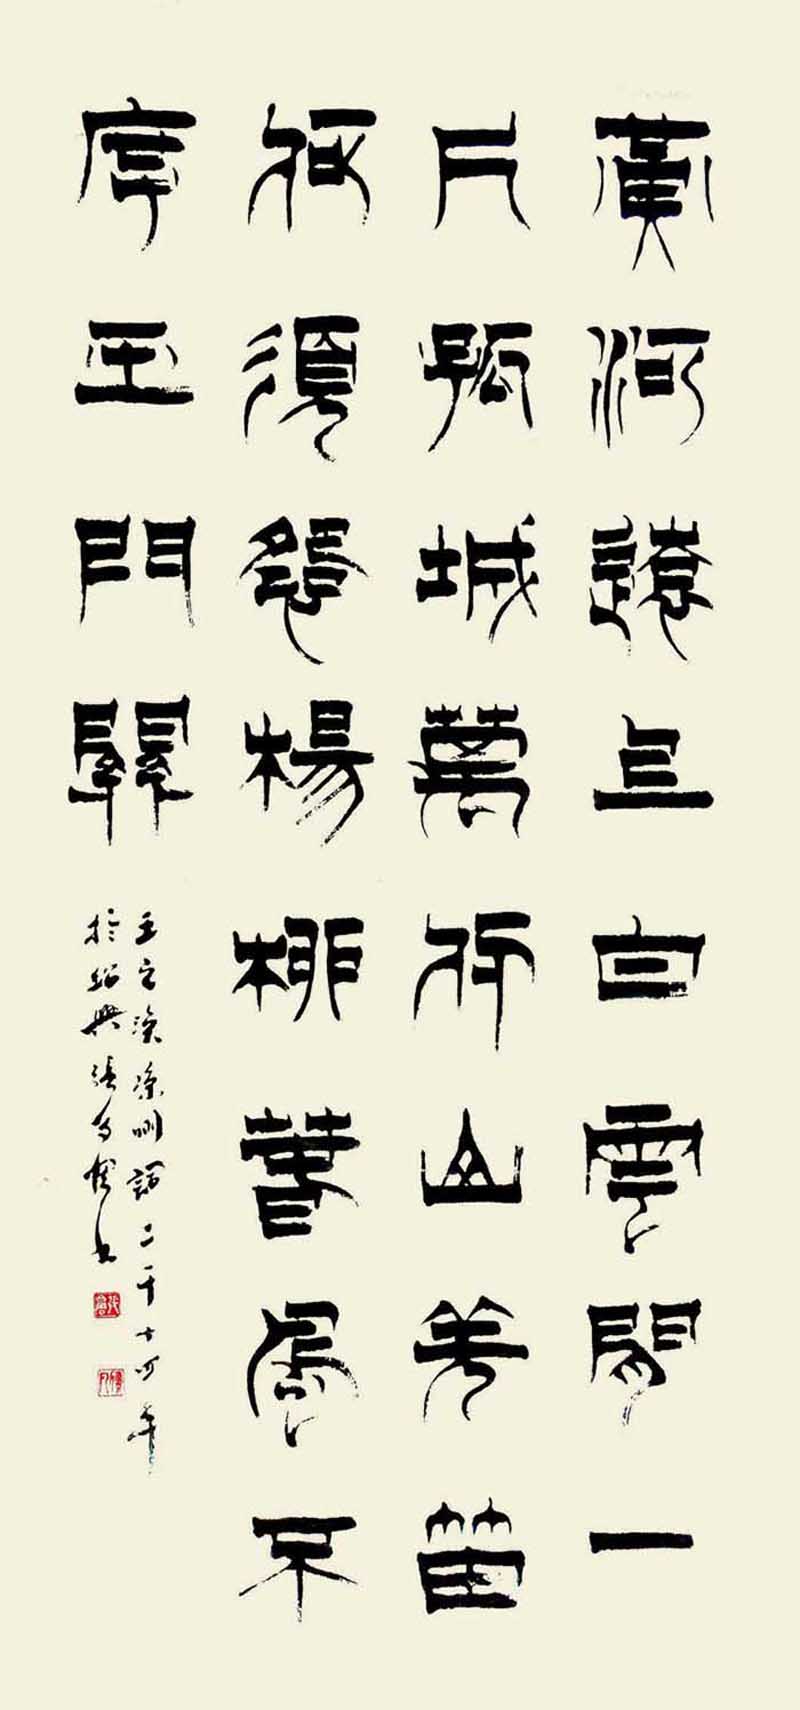 黃河遠上白雲間一
片孤城萬仞山羌笛
何須怨楊柳春風不
度玉門關
王之渙涼州詞二千十四年
於紹興張書